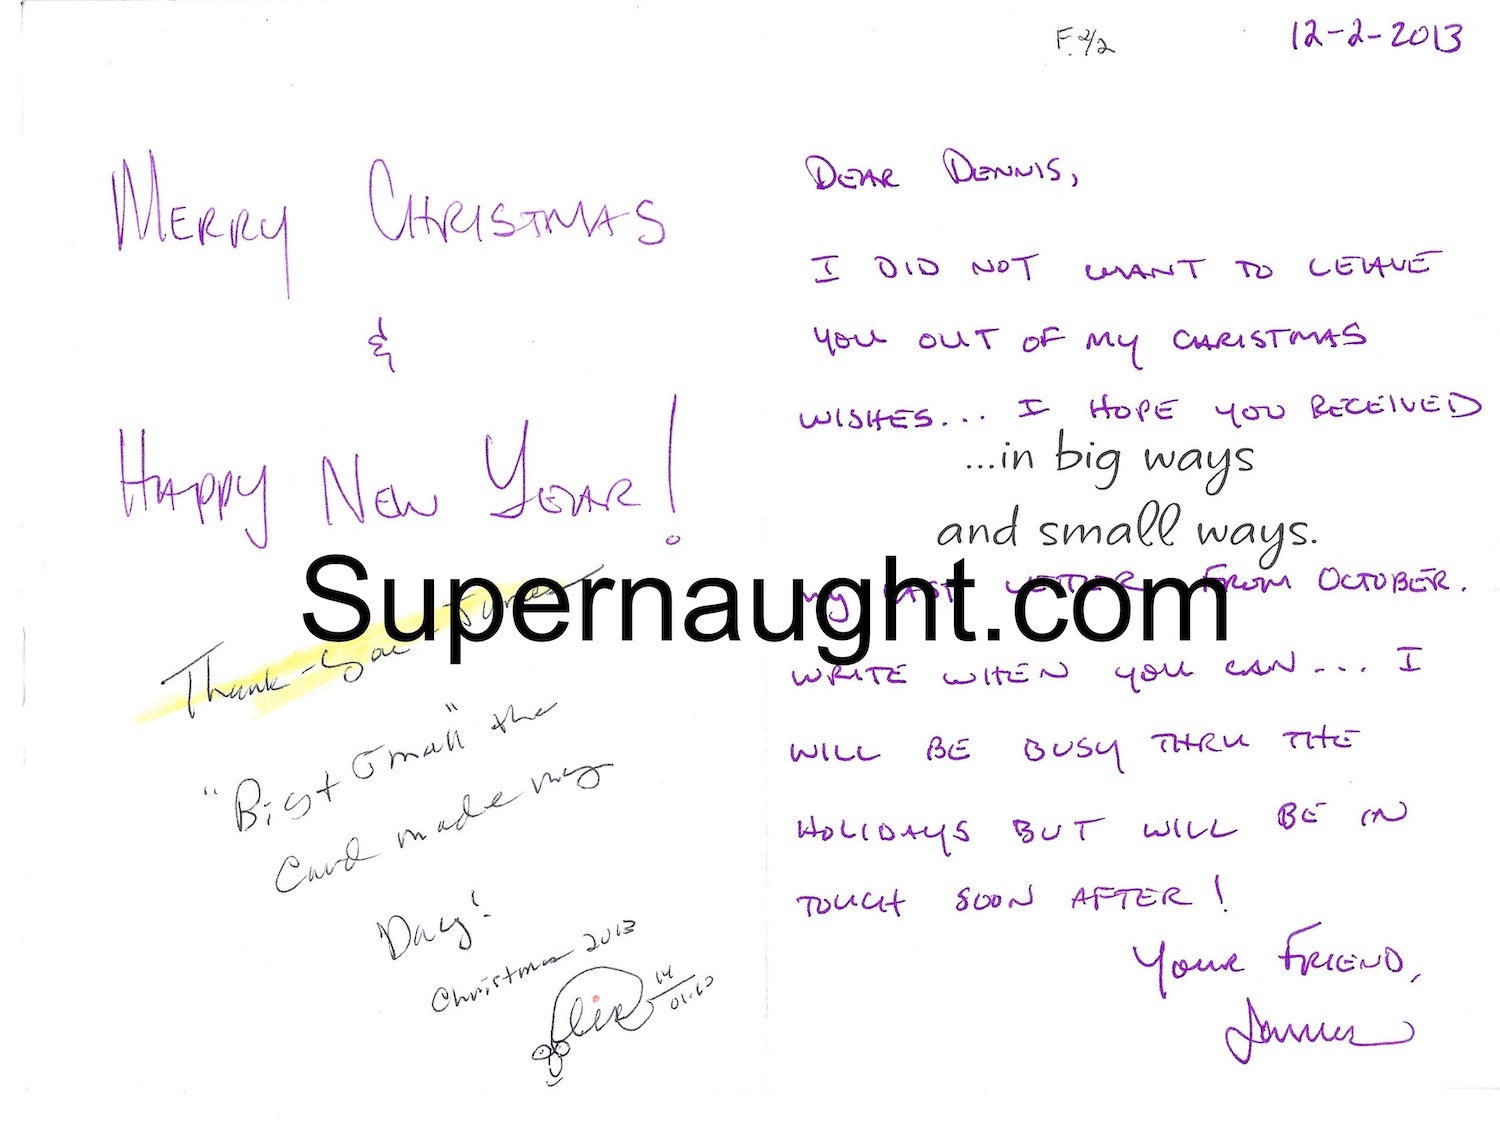 F. 2/2
12-2-2013
MERRY CHRISTMAS
&
HAPPY NEW YEAR!
Thank-you James
"Big + Small" the
Card made my
Day!
Christmas 2013
DEAR DENNIS,
I DID NOT WANT TO LEAVE
YOU OUT OF MY CHRISTMAS
WISHES... I HOPE YOU RECEIVED
...in big ways
and small ways.
MY LAST LETTER FROM OCTOBER.
WRITE WHEN YOU CAN... I
WILL BE BUSY THRU THE
HOLIDAYS BUT WILL BE IN
TOUCH SOON AFTER!
YOUR FRIEND,
James
Supernaught.com